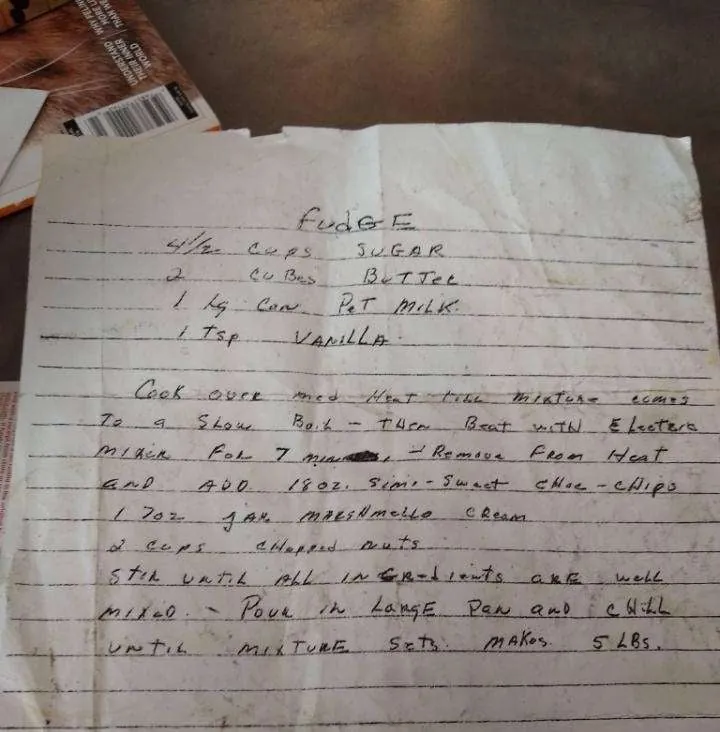 UNDERSTAND
THEIR INNER
WORLD
FudGE
4 1/2 cups SUGAR
2 CuBes BuTTer
1 Lg Can PeT MiLK.
1 Tsp VANiLLA.
Cook over med Heat till mixture comes
To a Slow Boil - THen Beat with Electric
mixer For 7 min. - Remove From Heat
AND ADD 18 oz. Simi-Sweet CHoc-CHips
1 7oz jar MARSHmello CReam
2 cups cHopped nuts
STir until ALL INGRedients ARE well
mixed. - Pour in LaRGE Pan and cHiLL
unTiL MIXTURE SeTs. MAKes 5 LBs.